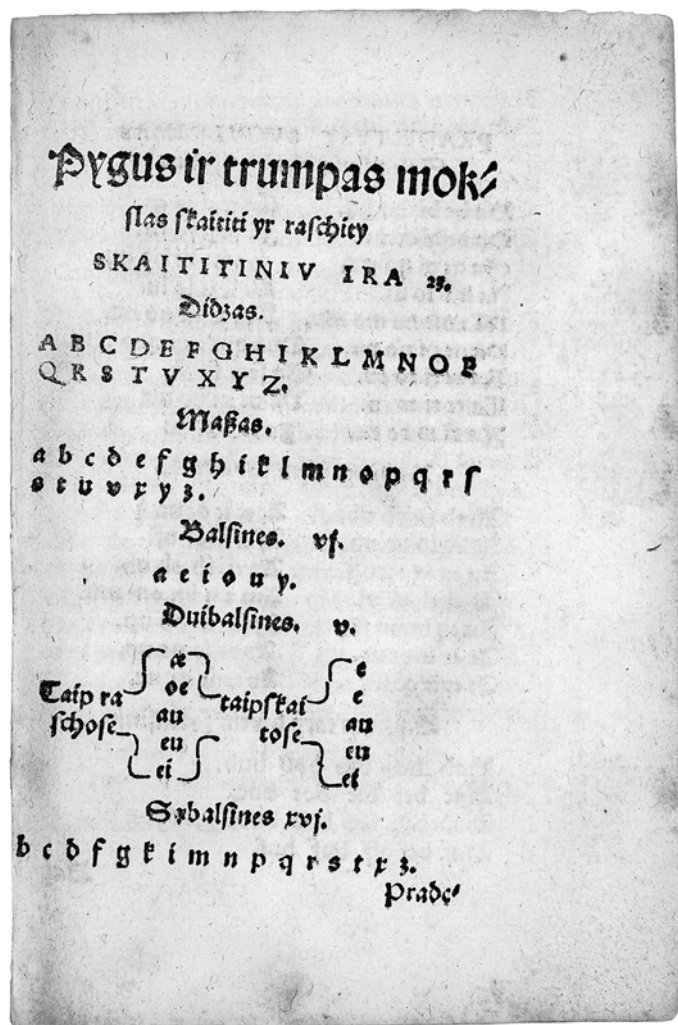 Pygus ir trumpas mok⸗
ſlas ſkaititi yr raſchity
SKAITITINIV IRA 23.
Didzas.
A B C D E F G H I K L M N O P
Q R S T V X Y Z.
Maßas.
a b c d e f g h i k l m n o p q r ſ
s t u v x y z.
Balſines. vſ.
a e i o u y.
Duibalſines. v.
Taip ra
ſchoſe
æ
oe
au
eu
ei
taipſkai
toſe
e
e
au
eu
ei
Sxbalſines xvj.
b c d f g k i m n p q r s t x z.
Pradę⸗